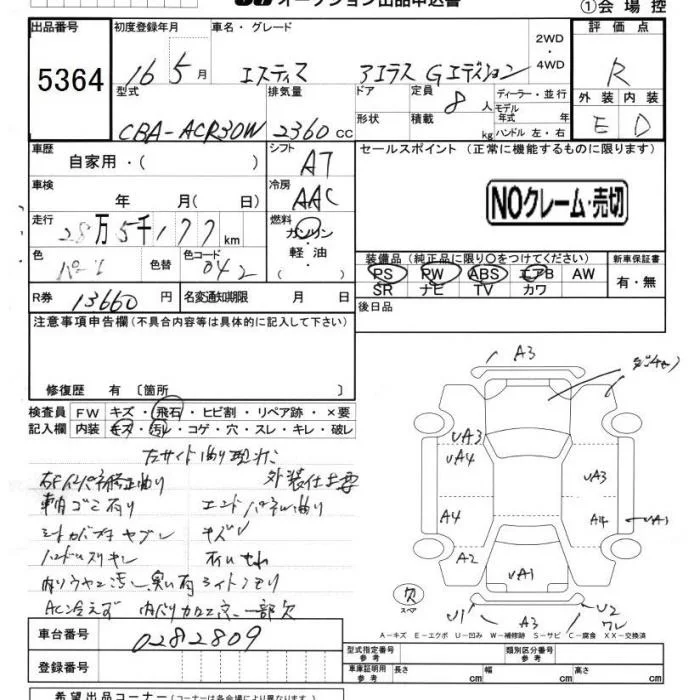 オークション出品申込書 ①会場控
出品番号 初度登録年月 車名・グレード 2WD ・ 4WD 評価点
5364 16 5月 エスティマ アエラス Gエディション R
型式 排気量 ドア 定員 8人 ディーラー・並行 外装 内装
モデル年式 年
CBA-ACR30W 2360cc 形状 積載 kg ハンドル 左・右 E D
車歴 自家用・( ) シフト AT セールスポイント (正常に機能するものに限ります)
車検 年 月(日) 冷房 AAC
NOクレーム・売切
走行 28万5千177km 燃料 ガソリン・軽油・( )
色 パール 色替 色カラーコード 042
装備品(純正品に限り○をつけてください) 新車保証書
PS PW ABS エアB AW 有・無
SR ナビ TV カワ
R券 13660円 名変通知期限 月 日 後日品
注意事項申告欄(不具合内容等は具体的に記入して下さい)
修復歴 有 〔箇所 〕
検査員 FW キズ・飛石・ヒビ割・リペア跡・×要
記入欄 内装 キズ・汚レ・コゲ・穴・スレ・キレ・破レ
外装仕上要
車内ゴミ有り エンドパネル曲り
シートカバー ヤブレ キズ
ハンドルスリキレ
ライトくもり
AC冷えず 一部欠
A3
UA3
UA4
UA3
A4
A4
UA1
A2
UA1
欠
スペア
U1
A3
U2
ワレ
A-キズ E-エクボ U-凹み W-補修跡 S-サビ C-腐食 XX-交換済
車台番号 0282809
型式指定番号 参考 類別区分番号 参考
登録番号 車庫証明用 参考 長さ cm 幅 cm 高さ cm
希望出品コーナー